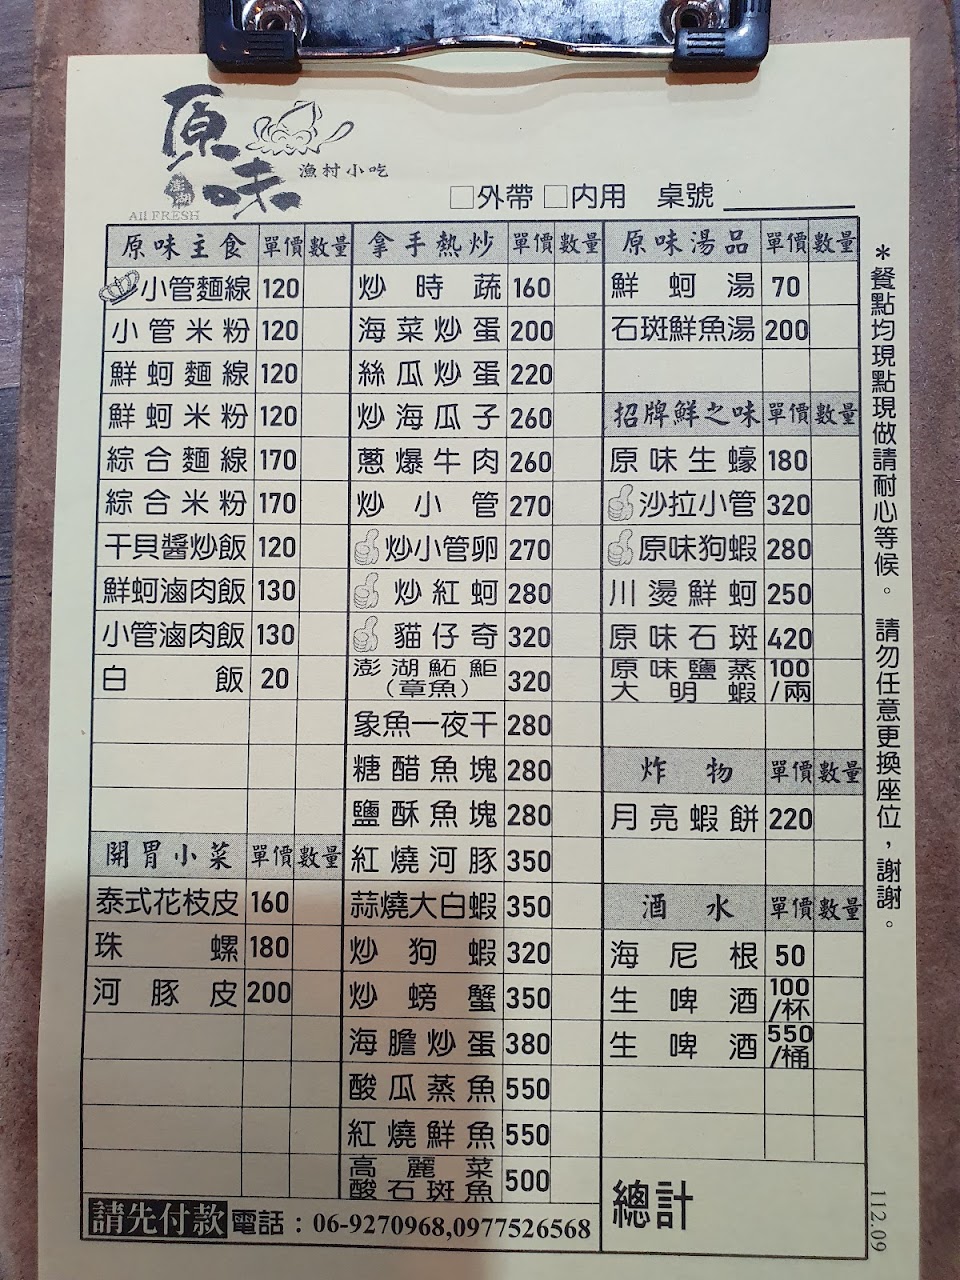 原味
澎湖
漁村小吃
All FRESH
□外帶 □內用 桌號
原味主食 單價 數量
小管麵線 120
小管米粉 120
鮮蚵麵線 120
鮮蚵米粉 120
綜合麵線 170
綜合米粉 170
干貝醬炒飯 120
鮮蚵滷肉飯 130
小管滷肉飯 130
白飯 20
開胃小菜 單價 數量
泰式花枝皮 160
珠螺 180
河豚皮 200
拿手熱炒 單價 數量
炒時蔬 160
海菜炒蛋 200
絲瓜炒蛋 220
炒海瓜子 260
蔥爆牛肉 260
炒小管 270
炒小管卵 270
炒紅蚵 280
貓仔奇 320
澎湖鮖鮔
(章魚) 320
象魚一夜干 280
糖醋魚塊 280
鹽酥魚塊 280
紅燒河豚 350
蒜燒大白蝦 350
炒狗蝦 320
炒螃蟹 350
海膽炒蛋 380
酸瓜蒸魚 550
紅燒鮮魚 550
高麗菜
酸石斑魚 500
原味湯品 單價 數量
鮮蚵湯 70
石斑鮮魚湯 200
招牌鮮之味 單價 數量
原味生蠔 180
沙拉小管 320
原味狗蝦 280
川燙鮮蚵 250
原味石斑 420
原味鹽蒸
大明蝦 100/兩
炸物 單價 數量
月亮蝦餅 220
酒水 單價 數量
海尼根 50
生啤酒 100/杯
生啤酒 550/桶
總計
請先付款 電話：06-9270968,0977526568
＊餐點均現點現做請耐心等候。請勿任意更換座位，謝謝。
112.09